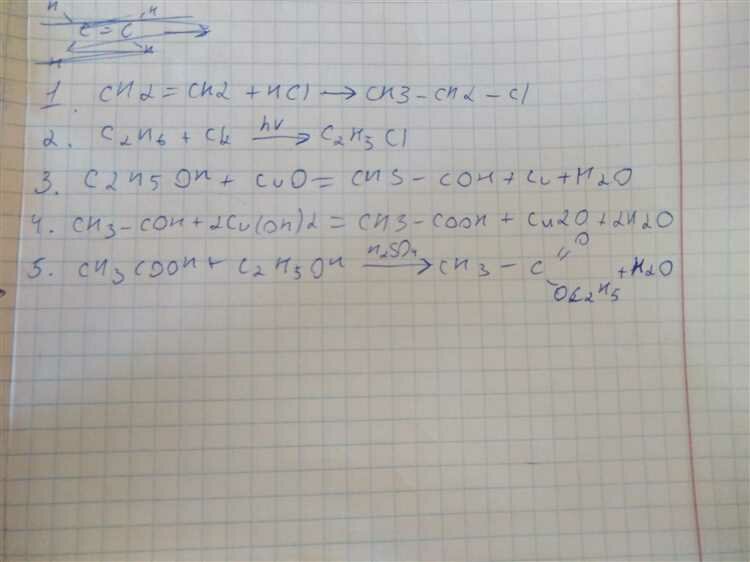 H H
C = C
H H
1. CH2 = CH2 + HCl → CH3 - CH2 - Cl
2. C2H6 + Cl2 hν → C2H5Cl
3. C2H5OH + CuO = CH3 - COH + Cu + H2O
4. CH3 - COH + 2Cu(OH)2 = CH3 - COOH + Cu2O + 2H2O
5. CH3COOH + C2H5OH H2SO4 → CH3 - C = O + H2O
- OC2H5